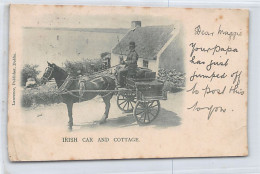 Dear Maggie
Your papa
has just
jumped off
to post this
to you.
IRISH CAR AND COTTAGE.
Lawrence, Publisher, Dublin.